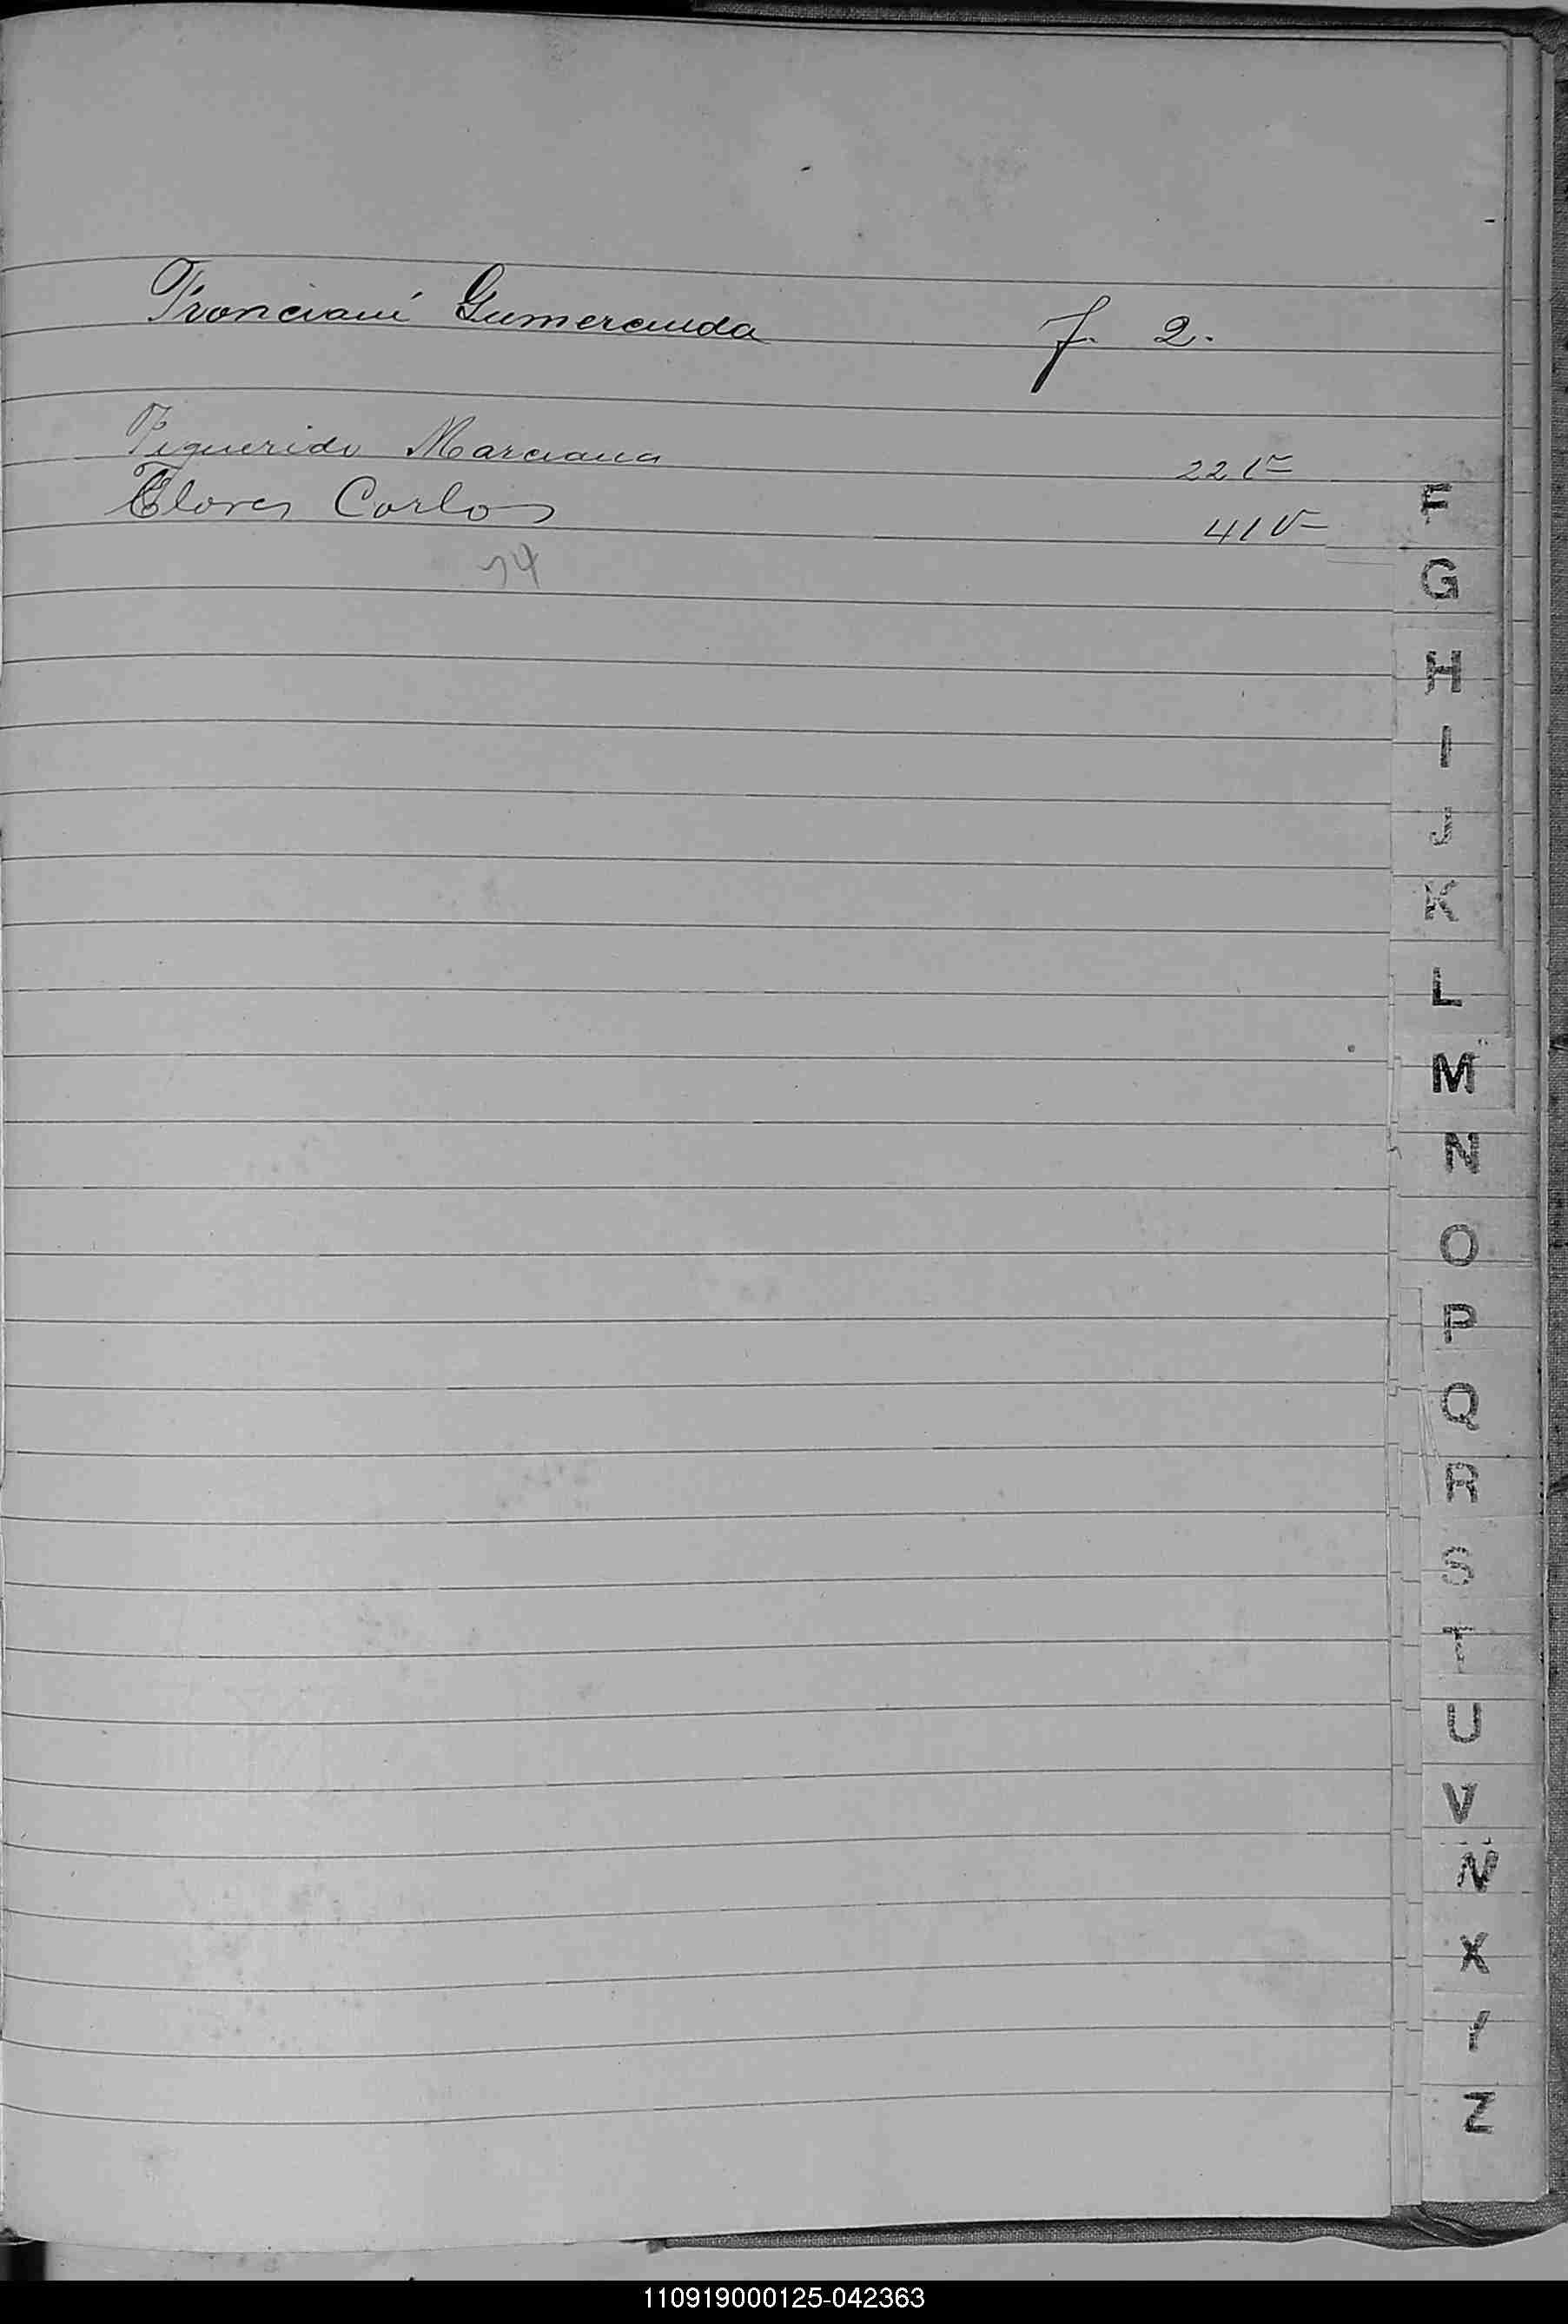 Franciani Gumercinda f. 2.
Figuerido Marciana 22 v
Flores Carlos 41 v
74
F
G
H
I
J
K
L
M
N
O
P
Q
R
S
T
U
V
W
X
Y
Z
110919000125-042363